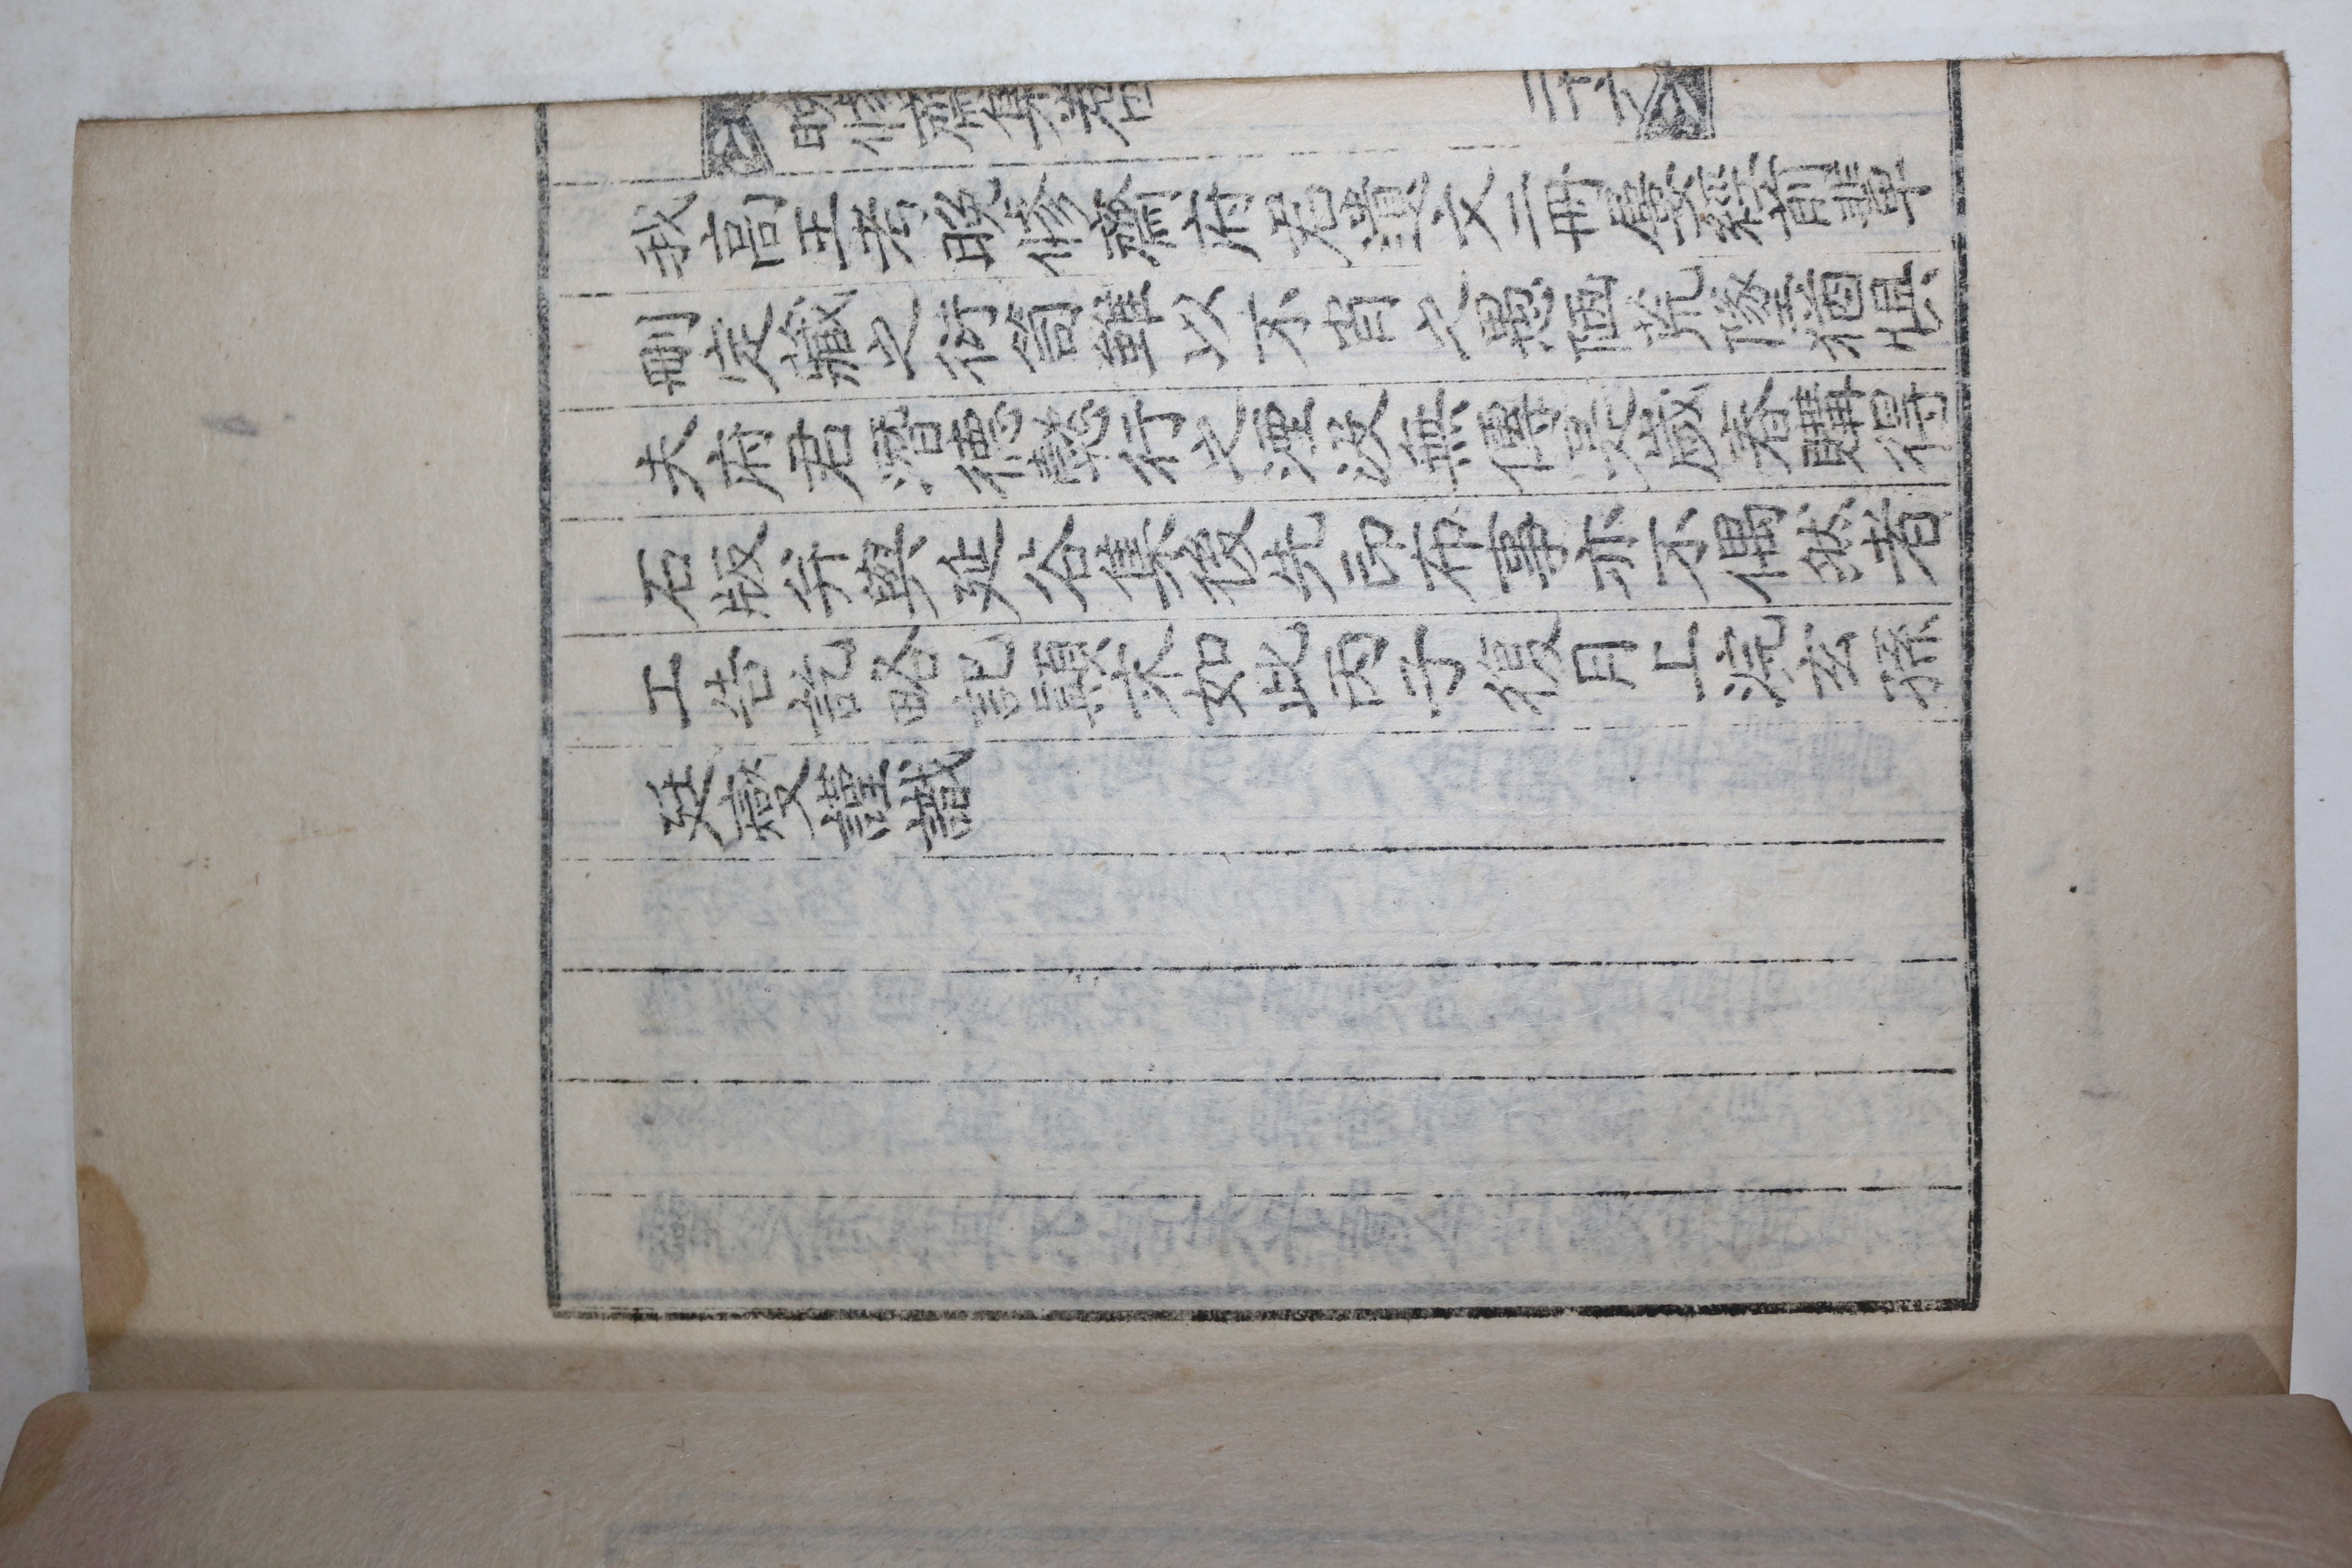 晩修齋集卷四
二十六
我高王考晩修齋府君遺文二冊屢經前輩
刪定藏之衍笥雖以不肖之愚陋荒墜猶惧
夫府君潛德懿行之湮沒無傳是歲春購得
石版弁與延谷集後先印布事亦不偶然者
工告訖略記顚末如此丙子復月上浣玄孫
廷燮謹識